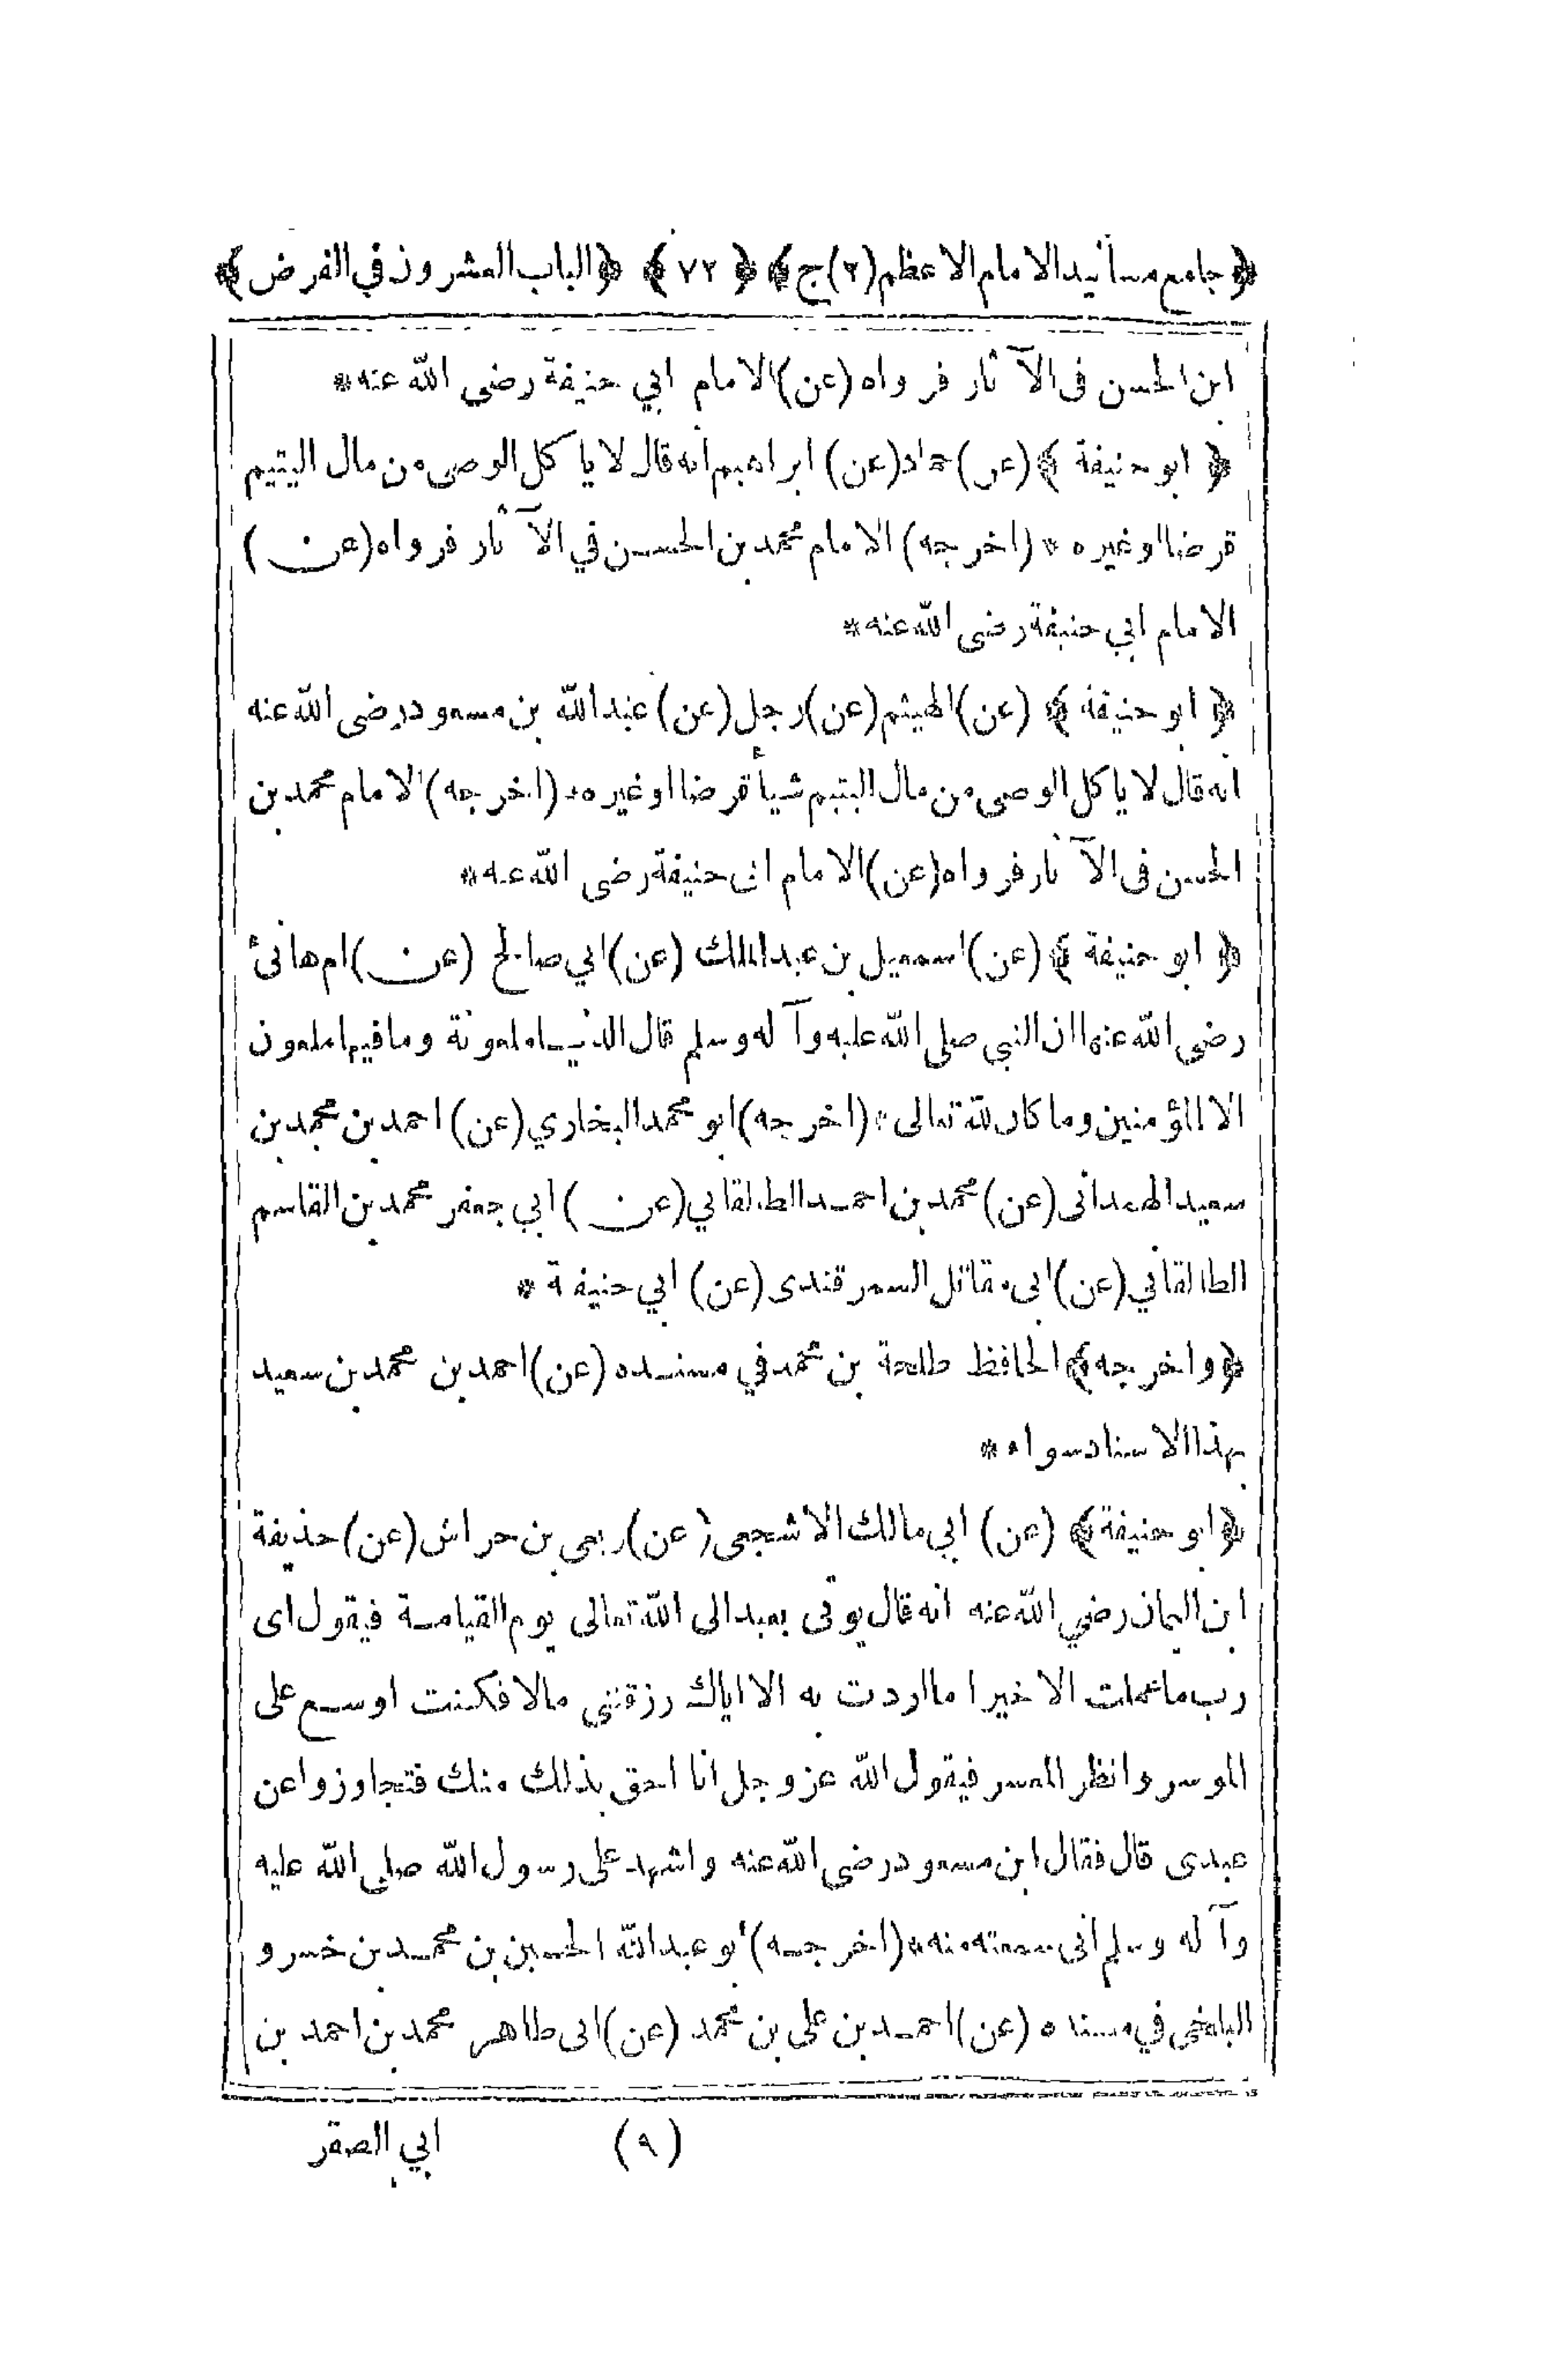 ﴿جامع مسانيد الامام الاعظم (٢) ج﴾ ﴿٧٢﴾ ﴿الباب العشرون في القرض﴾
ابن الحسن فى الآثار فرواه (عن) الامام ابي حنيفة رضى الله عنه*
﴿ابو حنيفة﴾ (عن) حماد (عن) ابراهيم انه قال لا يأكل الوصى من مال اليتيم
قرضا او غيره * (اخرجه) الامام محمد بن الحسن في الآثار فرواه (عن)
الامام ابي حنيفة رضى الله عنه*
﴿ابو حنيفة﴾ (عن) الهيثم (عن) رجل (عن) عبد الله بن مسعود رضى الله عنه
انه قال لا ياكل الوصى من مال اليتيم شيأ قرضا او غيره * (اخرجه) الامام محمد بن
الحسن فى الآثار فرواه (عن) الامام ابى حنيفة رضى الله عنه*
﴿ابو حنيفة﴾ (عن) اسمعيل بن عبد الملك (عن) ابي صالح (عن) ام هانئ
رضى الله عنها ان النبي صلى الله عليه وآله وسلم قال الدنيا ملعونة وما فيها ملعون
الا المؤمنين وما كان لله تعالى * (اخرجه) ابو محمد البخاري (عن) احمد بن محمد بن
سعيد الهمدانى (عن) محمد بن احمد الطالقاني (عن) ابي جعفر محمد بن القاسم
الطالقاني (عن) ابى مقاتل السمرقندى (عن) ابي حنيفة *
﴿واخرجه﴾ الحافظ طلحة بن محمد في مسنده (عن) احمد بن محمد بن سعيد
بهذا الاسناد سواء *
﴿ابو حنيفة﴾ (عن) ابي مالك الاشجعى (عن) ربعى بن حراش (عن) حذيفة
ابن اليمان رضي الله عنه انه قال يوتى بعبد الى الله تعالى يوم القيامة فيقول اى
رب ما عملت الا خيرا ما اردت به الا اياك رزقتني مالا فكنت اوسع على
الموسر وانظر المعسر فيقول الله عز وجل انا احق بذلك منك فتجاوزوا عن
عبدى قال فقال ابن مسعود رضى الله عنه واشهد على رسول الله صلى الله عليه
وآله وسلم انى سمعته منه * (اخرجه) ابو عبد الله الحسين بن محمد بن خسرو
البلخى في مسنده (عن) احمد بن على بن محمد (عن) ابى طاهر محمد بن احمد بن
(٩) ابي الصقر